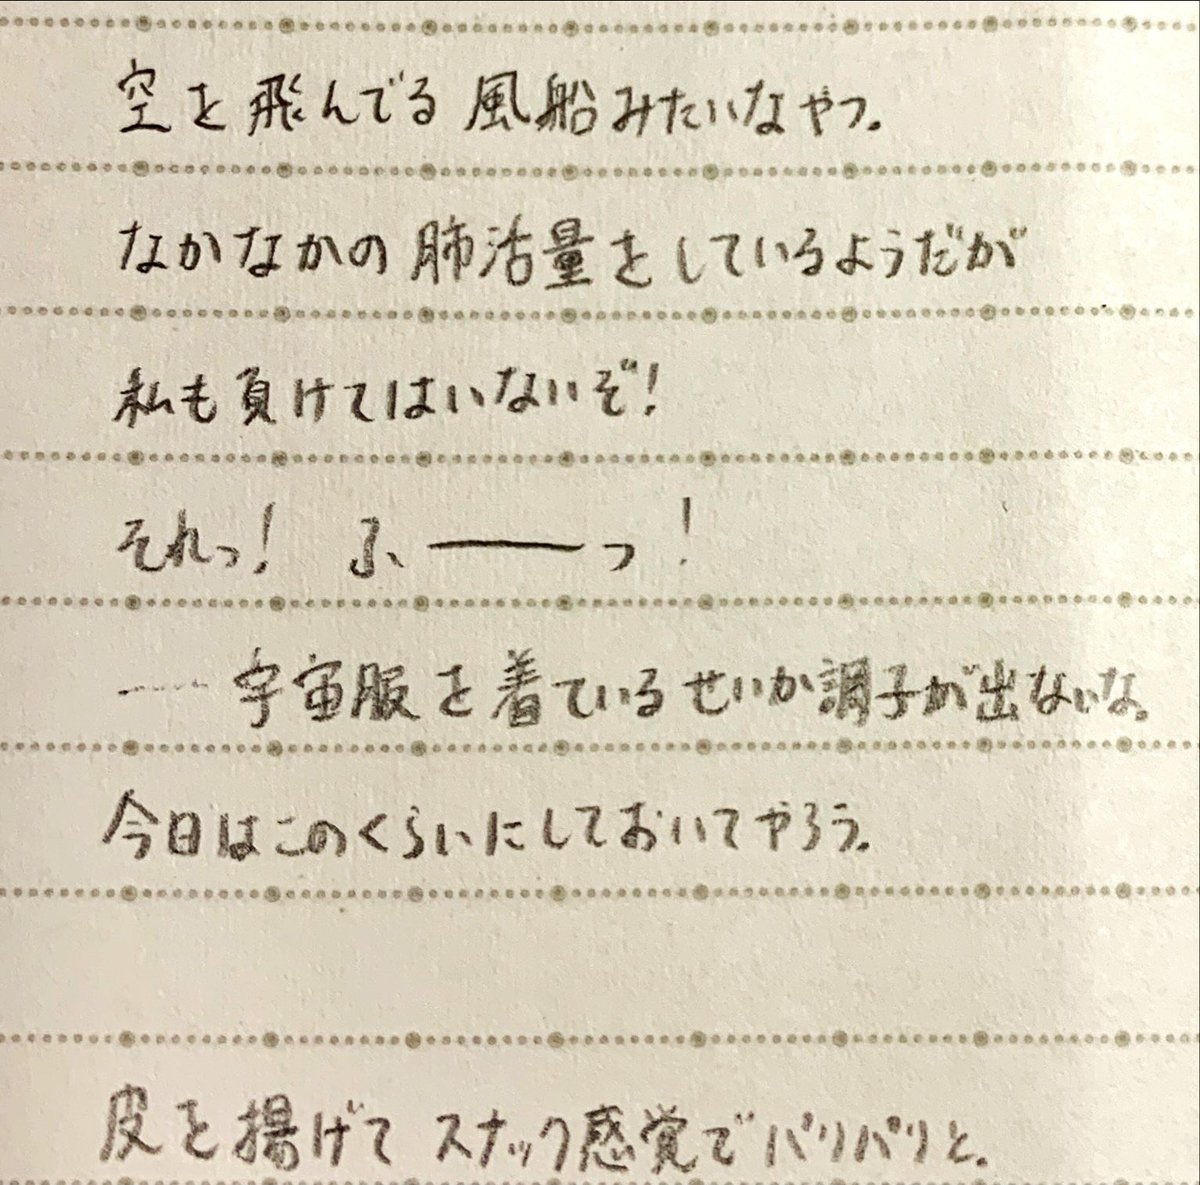 空を飛んでる風船みたいなやつ。
なかなかの肺活量をしているようだが
私も負けてはいないぞ！
それっ！ ふーーっ！
…… 宇宙服を着ているせいか調子が出ないな。
今日はこのくらいにしておいてやろう。
皮を揚げてスナック感覚でパリパリと。